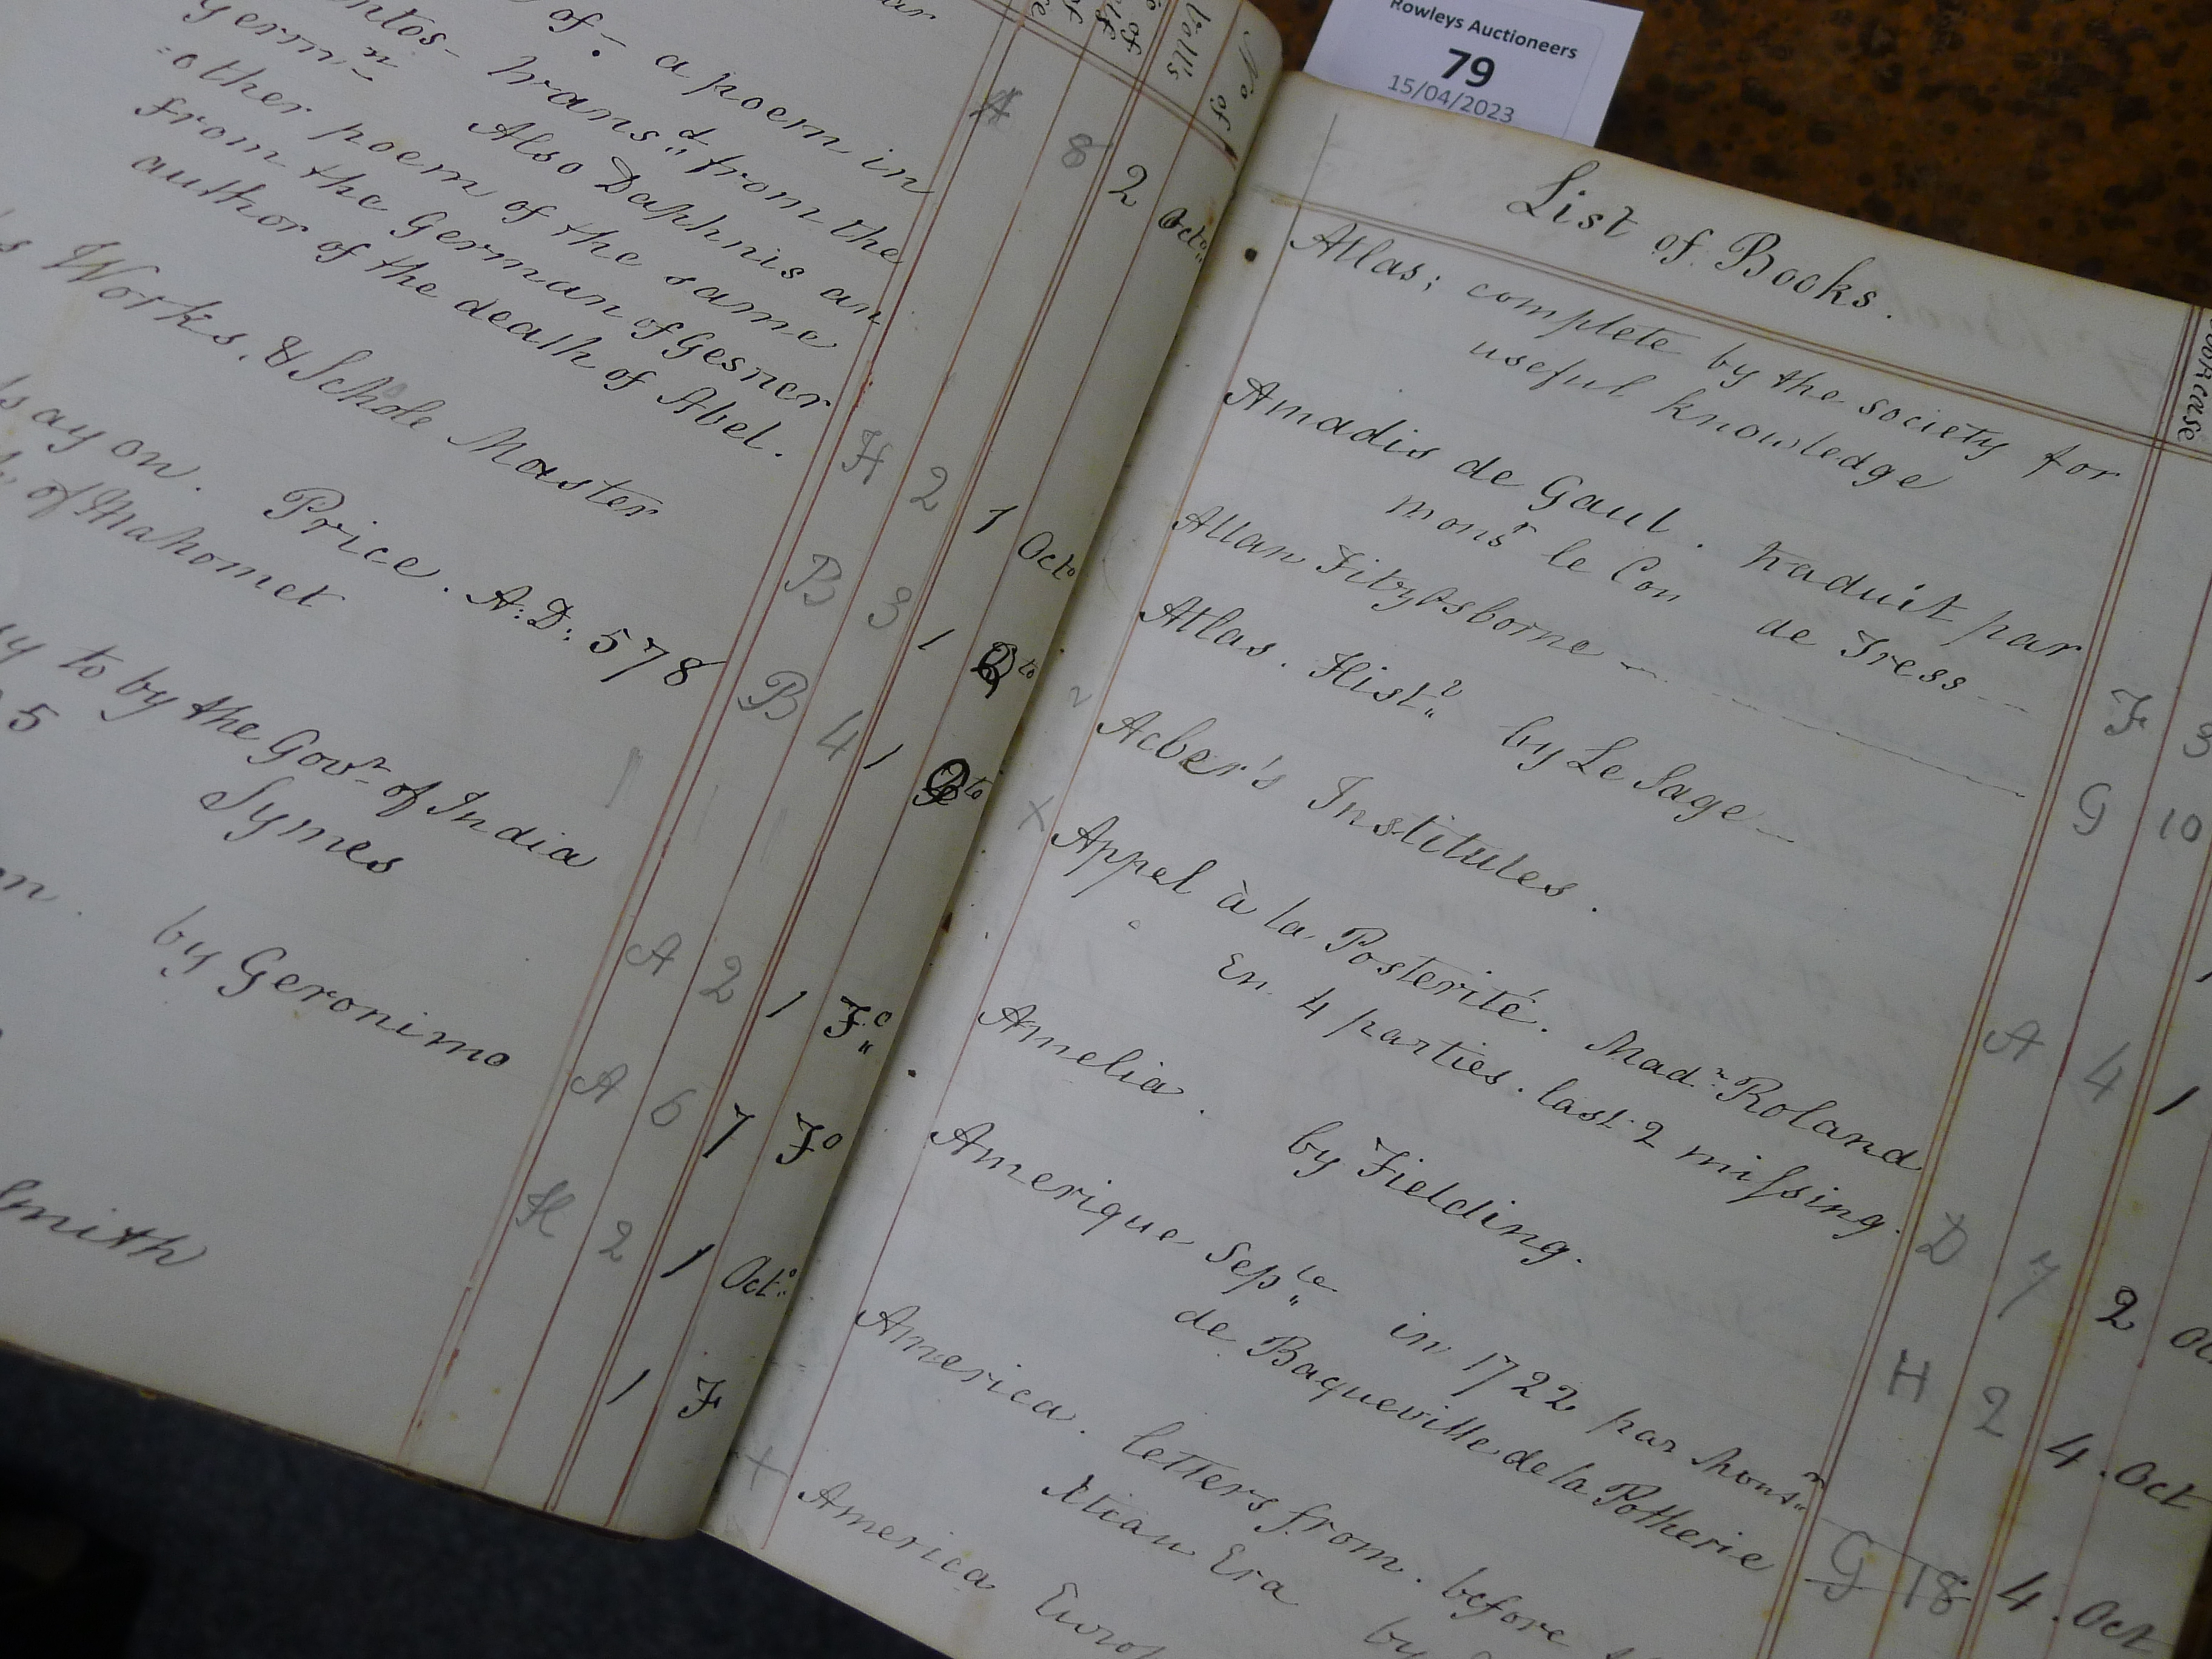 of - a poem in
Transd from the
Germn Also Daphnis an
=other poem of the same
from the German of Gesner
author of the death of Abel.
A 8 2 Octo
Works. & Schole Master
H 2 1 Octo
say on. Price. A:D: 578
of Mahomet
B 3 1 Qto
B 4 1 Qto
to by the Govr of India
5 Symes
A 2 1 Fo
by Geronimo
A 6 1 Fo
H 2 1 Octo
Smith
1 F
No of
Volls
Rowleys Auctioneers
79
15/04/2023
List of Books.
Bookcase
Atlas; complete by the society for
useful knowledge
Amadis de Gaul. traduit par
monsr le Con de Tress
F 3
Allan Fitzosborne
G 10
Atlas. Histl by Le Sage
Acber's Institutes.
A 4 1
Appel à la Posterité. Made Roland
En 4 parties. last 2 missing.
D 7 2
Amelia. by Fielding.
H 2 4. Oct
Amerique Seple in 1722 par Monsr
de Baqueville de la Potherie
G 18 4. Oct
America. letters from. before
Xtian Era by
America